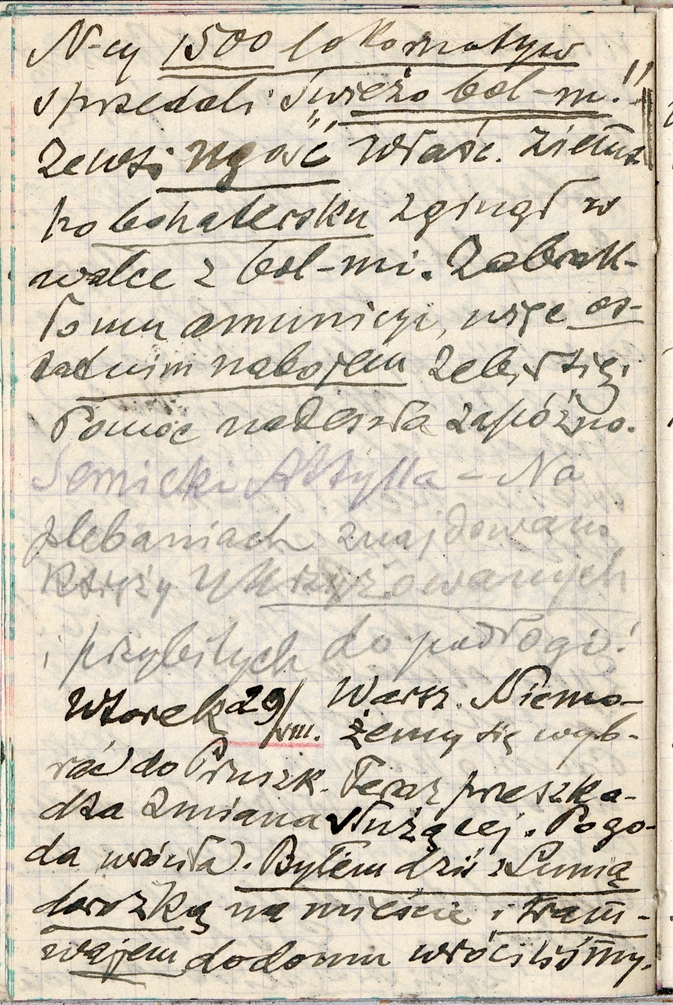 N-cy 1500 lokomotyw
sprzedali świeżo bol-m.!!
Zewsi właśc. ziemsk
ko bohatersku zginął w
walce z bol-mi. Zabrak-
ło mu amunicji, więc os-
tatnim nabojem zabił się;
Pomoc nadeszła zapóźno.
Semicki Attylla – Na
plebaniach znajdowano
Księży Ukrzyżowanych
i przybitych do podłogi!
Wtorek 29/VIII. Warsz. Niemo-
żemy się wyb-
rać do Pruszk. Teraz przeszka-
dza zmiana służącej. Pogo-
da wróciła. Byłem dziś z Lunią
dorożką na mieście i tram-
wajem do domu wróciliśmy.